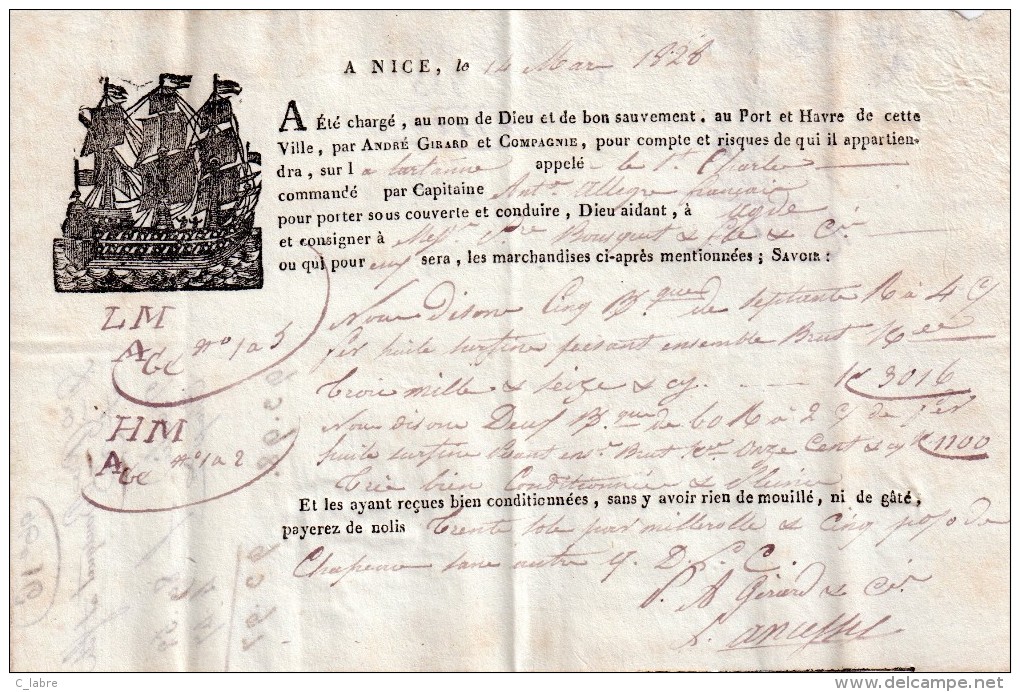 A NICE, le 14 Mar 1828
A Été chargé, au nom de Dieu et de bon sauvement, au Port et Havre de cette
Ville, par ANDRÉ GIRARD et COMPAGNIE, pour compte et risques de qui il appartien-
dra, sur la tartanne appelé le St. Charles
commandé par Capitaine Ant.e Allegre francais
pour porter sous couverte et conduire, Dieu aidant, à agde
et consigner à Mess.rs Bousquet & C.ie
ou qui pour eux sera, les marchandises ci-après mentionnées; SAVOIR:
LM
A&C n.o 1 a 5
Nous disons Cinq B.ques de septante R a 4 C
fer huile surfine pesant ensemble Brut K.ee
trois mille & seize & cy. K 3016
HM
A&C n.o 1 a 2
Nous disons Deux B.que de 60 R a 2 C de fer
huile surfine Brut Onze Cent & cy K 1100
Très bien Conditionnée & pleine
Et les ayant reçues bien conditionnées, sans y avoir rien de mouillé, ni de gâté,
payerez de nolis trente sols par millerolle & cinq p% de
Chapeau sans autre D. C.
P. A Girard & C.ie
C_labre
delcampe.net